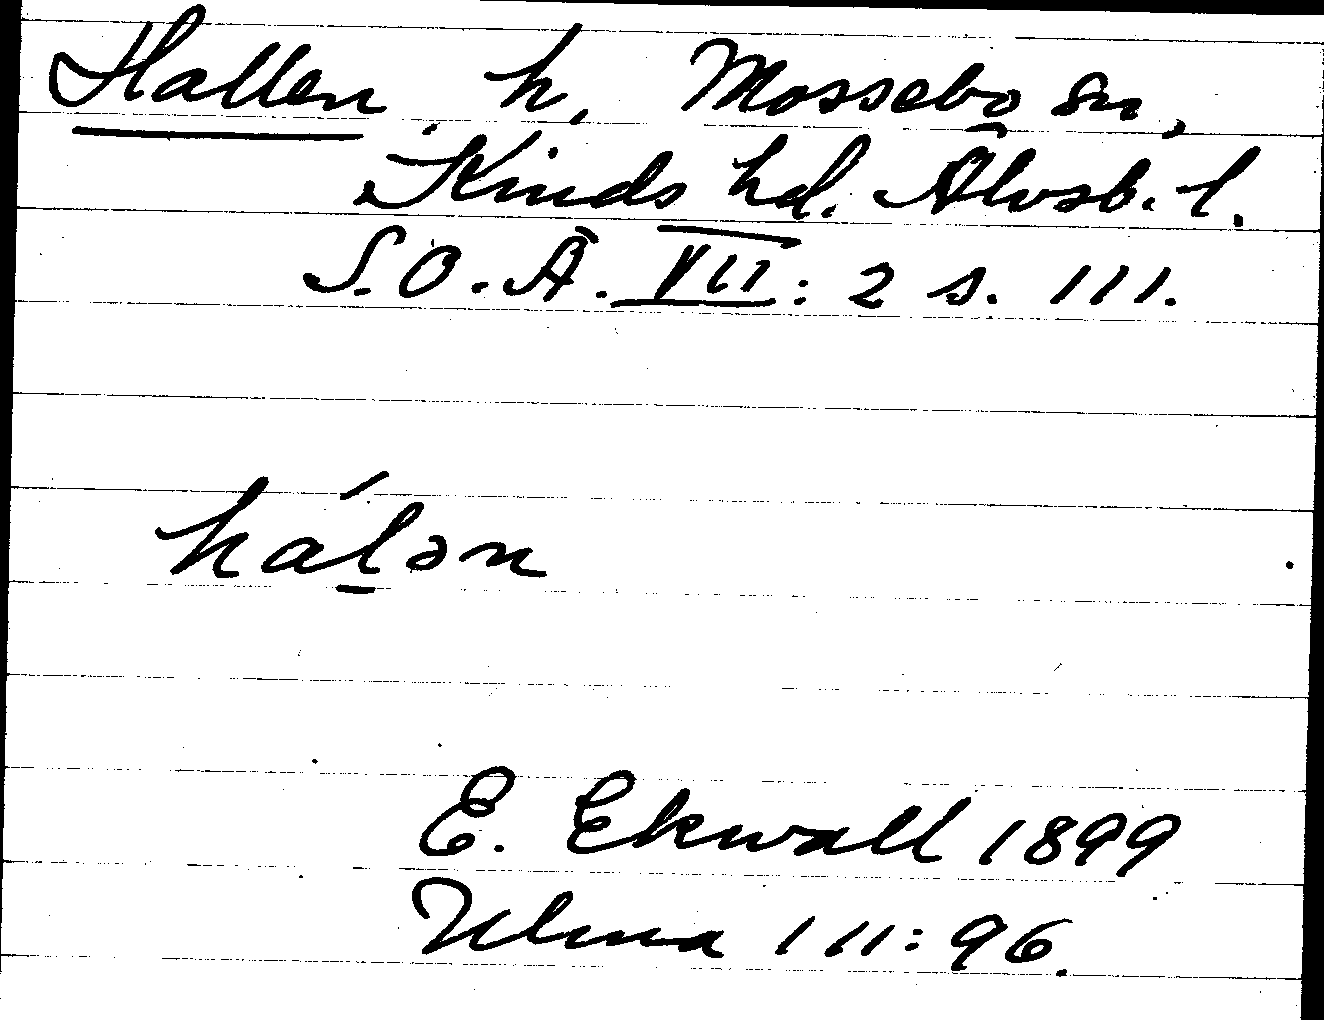 Hallen, h. Mossebo sn,
Kinds hd. Älvsb. l.
S.O.Ä. VII: 2 s. 111.
háḻən
E. Ekwall 1899
Ulma 111:96.